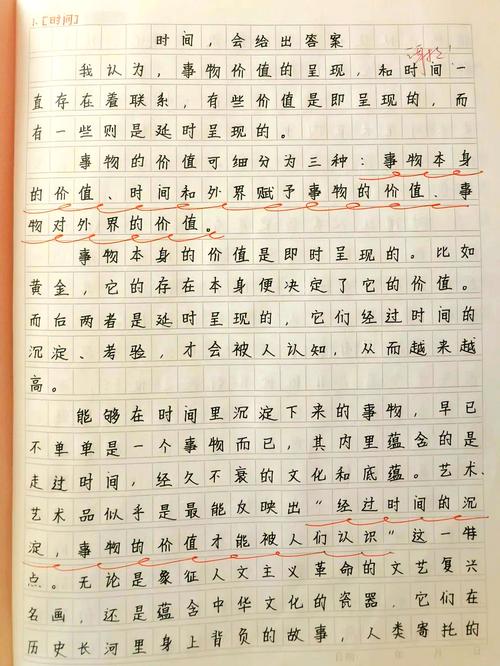 1.[时间]
时间，会给出答案
我认为，事物价值的呈现，和时间一
直存在着联系，有些价值是即呈现的，而
有一些则是延时呈现的。
事物的价值可细分为三种：事物本身
的价值、时间和外界赋予事物的价值、事
物对外界的价值。
事物本身的价值是即时呈现的。比如
黄金，它的存在本身便决定了它的价值。
而后两者是延时呈现的，它们经过时间的
沉淀、考验，才会被人认知，从而越来越
高。
能够在时间里沉淀下来的事物，早已
不单单是一个事物而已，其内里蕴含的是
走过时间，经久不衰的文化和底蕴。艺术、
艺术品似乎是最能反映出“经过时间的沉
淀，事物的价值才能被人们认识”这一特
点。无论是象征人文主义革命的文艺复兴
名画，还是蕴含中华文化的瓷器，它们在
历史长河里身上背负的故事，人类寄托的